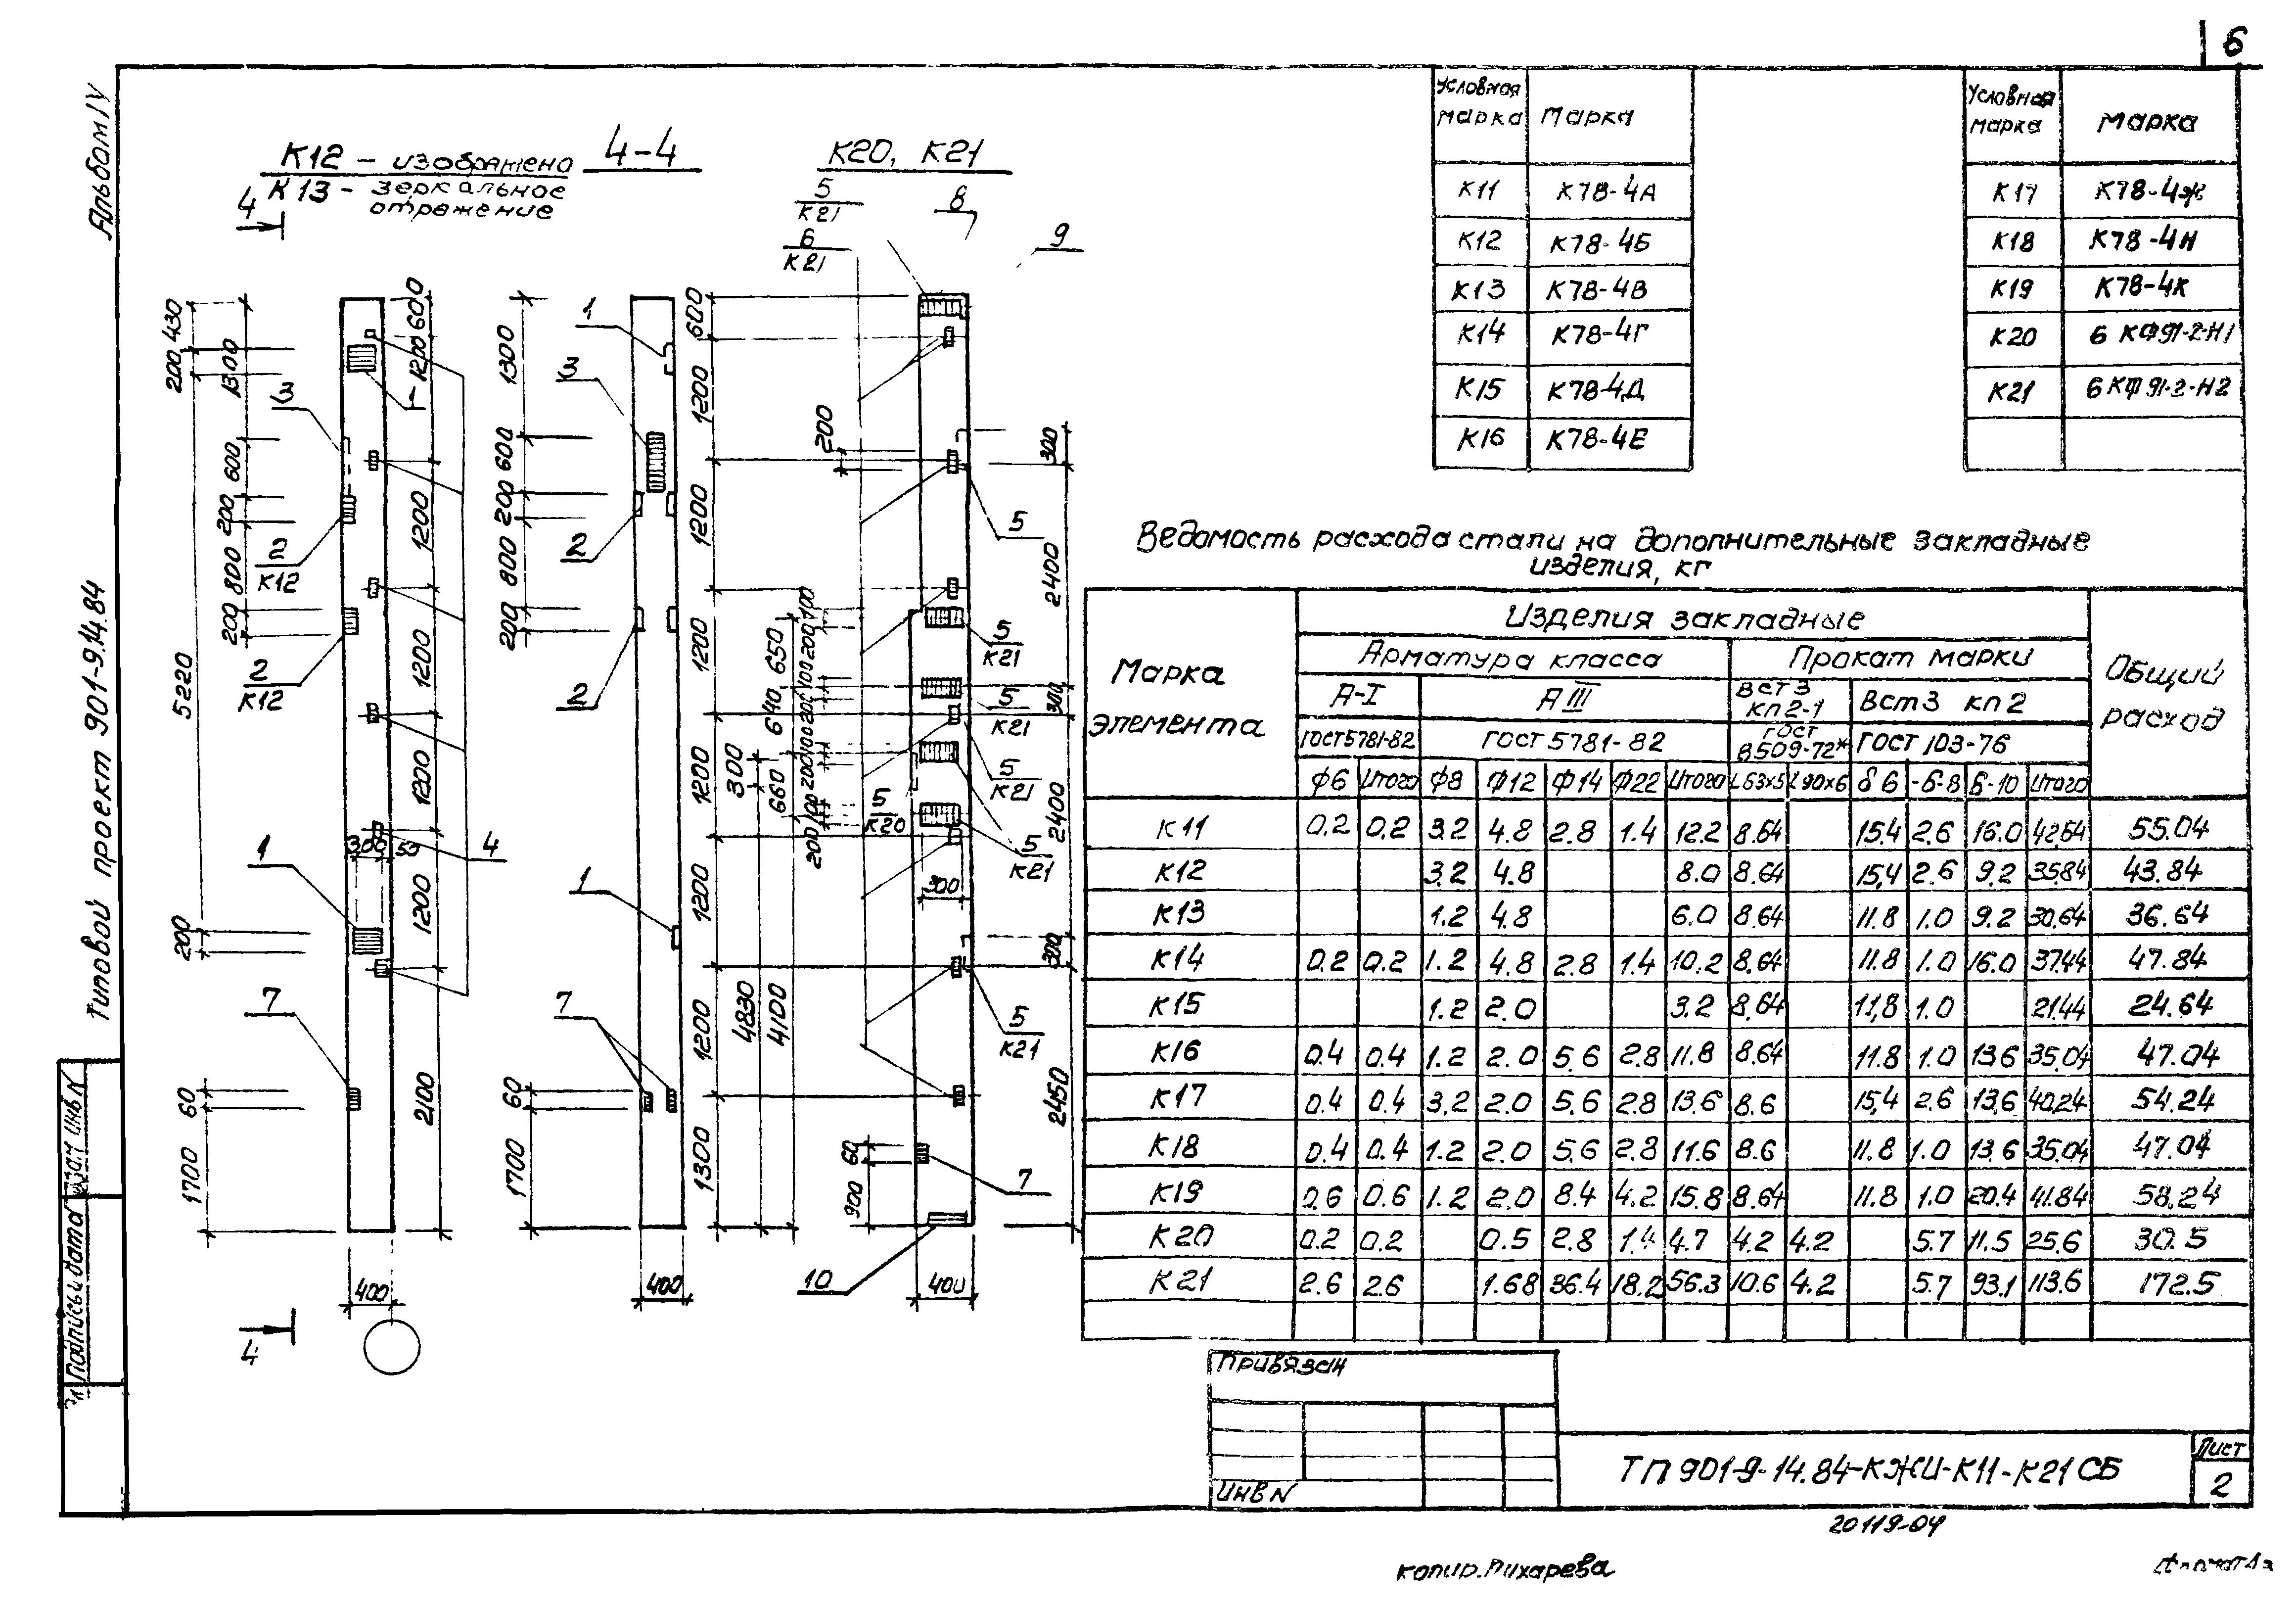 6
Альбом IV
Типовой проект 901-9.14.84
К12 - изображено
К13 - зеркальное
отражение
4-4
К20, К21
4
4
5
К21
6
К21
8
9
430
200
5220
200
60
1700
1300
600
200
800
200
3
2
К12
2
К12
1
7
1
600
1200
1200
1200
1200
1200
2100
300
50
4
400
1300
600
200
800
200
60
1700
1
3
2
2
1
7
400
600
1200
1200
1200
1200
1200
1200
1300
300
4830
650
640
660
4100
100
200
100
200
100
200
100
200
200
5
К20
300
60
900
7
10
400
5
5
К21
5
К21
5
К21
5
К21
5
К21
300
2400
300
2400
300
2450
Условная марка | Марка
К11 | К78-4А
К12 | К78-4Б
К13 | К78-4В
К14 | К78-4Г
К15 | К78-4Д
К16 | К78-4Е
Условная марка | Марка
К17 | К78-4Ж
К18 | К78-4Н
К19 | К78-4К
К20 | 6 КФ91-2-Н1
К21 | 6 КФ91-2-Н2
Ведомость расхода стали на дополнительные закладные
изделия, кг
Марка элемента | Изделия закладные | Общий расход
Арматура класса | Прокат марки
А-I | А III | Вст3 кп2-1 | Вст3 кп2
ГОСТ 5781-82 | ГОСТ 5781-82 | ГОСТ 8509-72* | ГОСТ 103-76
ф6 | Итого | ф8 | ф12 | ф14 | ф22 | Итого | L63х5 | L90х6 | δ6 | -δ-8 | δ-10 | Итого
К11 | 0.2 | 0.2 | 3.2 | 4.8 | 2.8 | 1.4 | 12.2 | 8.64 | 15.4 | 2.6 | 16.0 | 42.64 | 55.04
К12 | 3.2 | 4.8 | 8.0 | 8.64 | 15,4 | 2.6 | 9.2 | 35.84 | 43.84
К13 | 1.2 | 4.8 | 6.0 | 8.64 | 11.8 | 1.0 | 9.2 | 30.64 | 36.64
К14 | 0.2 | 0.2 | 1.2 | 4.8 | 2.8 | 1.4 | 10.2 | 8.64 | 11.8 | 1.0 | 16.0 | 37.44 | 47.84
К15 | 1.2 | 2.0 | 3.2 | 8.64 | 11,8 | 1.0 | 21.44 | 24.64
К16 | 0.4 | 0.4 | 1.2 | 2.0 | 5.6 | 2.8 | 11.8 | 8.64 | 11.8 | 1.0 | 13.6 | 35.04 | 47.04
К17 | 0.4 | 0.4 | 3.2 | 2.0 | 5.6 | 2.8 | 13.6 | 8.6 | 15,4 | 2.6 | 13,6 | 40.24 | 54.24
К18 | 0.4 | 0.4 | 1.2 | 2.0 | 5.6 | 2.8 | 11.6 | 8.6 | 11.8 | 1.0 | 13.6 | 35.04 | 47.04
К19 | 0.6 | 0.6 | 1.2 | 2.0 | 8.4 | 4.2 | 15.8 | 8.64 | 11.8 | 1.0 | 20.4 | 41.84 | 58.24
К20 | 0.2 | 0.2 | 0.5 | 2.8 | 1.4 | 4.7 | 4.2 | 4.2 | 5.7 | 11.5 | 25.6 | 30.5
К21 | 2.6 | 2.6 | 1.68 | 36.4 | 18.2 | 56.3 | 10.6 | 4.2 | 5.7 | 93.1 | 113.6 | 172.5
Привязан
ИНВ N
ТП 901-9-14.84-КЖИ-К11-К21СБ
Лист
2
20119-04
копир. Пихарева
Подпись и дата
инв N